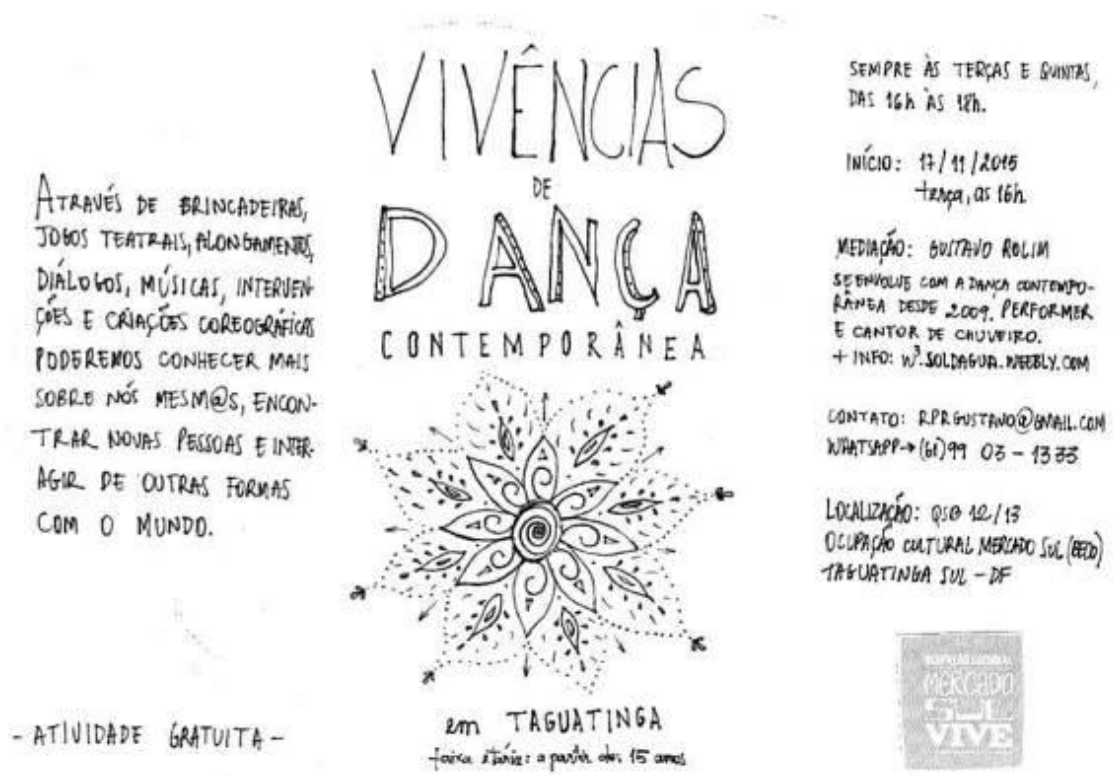 ATRAVÉS DE BRINCADEIRAS,
JOGOS TEATRAIS, ALONGAMENTOS,
DIÁLOGOS, MÚSICAS, INTERVEN-
ÇÕES E CRIAÇÕES COREOGRÁFICAS
PODEREMOS CONHECER MAIS
SOBRE NÓS MESM@S, ENCON-
TRAR NOVAS PESSOAS E INTER-
AGIR DE OUTRAS FORMAS
COM O MUNDO.
- ATIVIDADE GRATUITA -
VIVÊNCIAS
DE
DANÇA
CONTEMPORÂNEA
em TAGUATINGA
faixa etária: a partir dos 15 anos
SEMPRE ÀS TERÇAS E QUINTAS,
DAS 16h ÀS 18h.
INÍCIO: 17/11/2015
terça, às 16h
MEDIAÇÃO: GUSTAVO ROLIM
SE ENVOLVE COM A DANÇA CONTEMPO-
RÂNEA DESDE 2009. PERFORMER
E CANTOR DE CHUVEIRO.
+ INFO: W³.SOLDAGUA.WEEBLY.COM
CONTATO: RPRGUSTAVO@GMAIL.COM
WHATSAPP→(61)99 03-1333
LOCALIZAÇÃO: QSB 12/13
OCUPAÇÃO CULTURAL MERCADO SUL (BECO)
TAGUATINGA SUL - DF
OCUPAÇÃO CULTURAL
MERCADO
SUL
VIVE